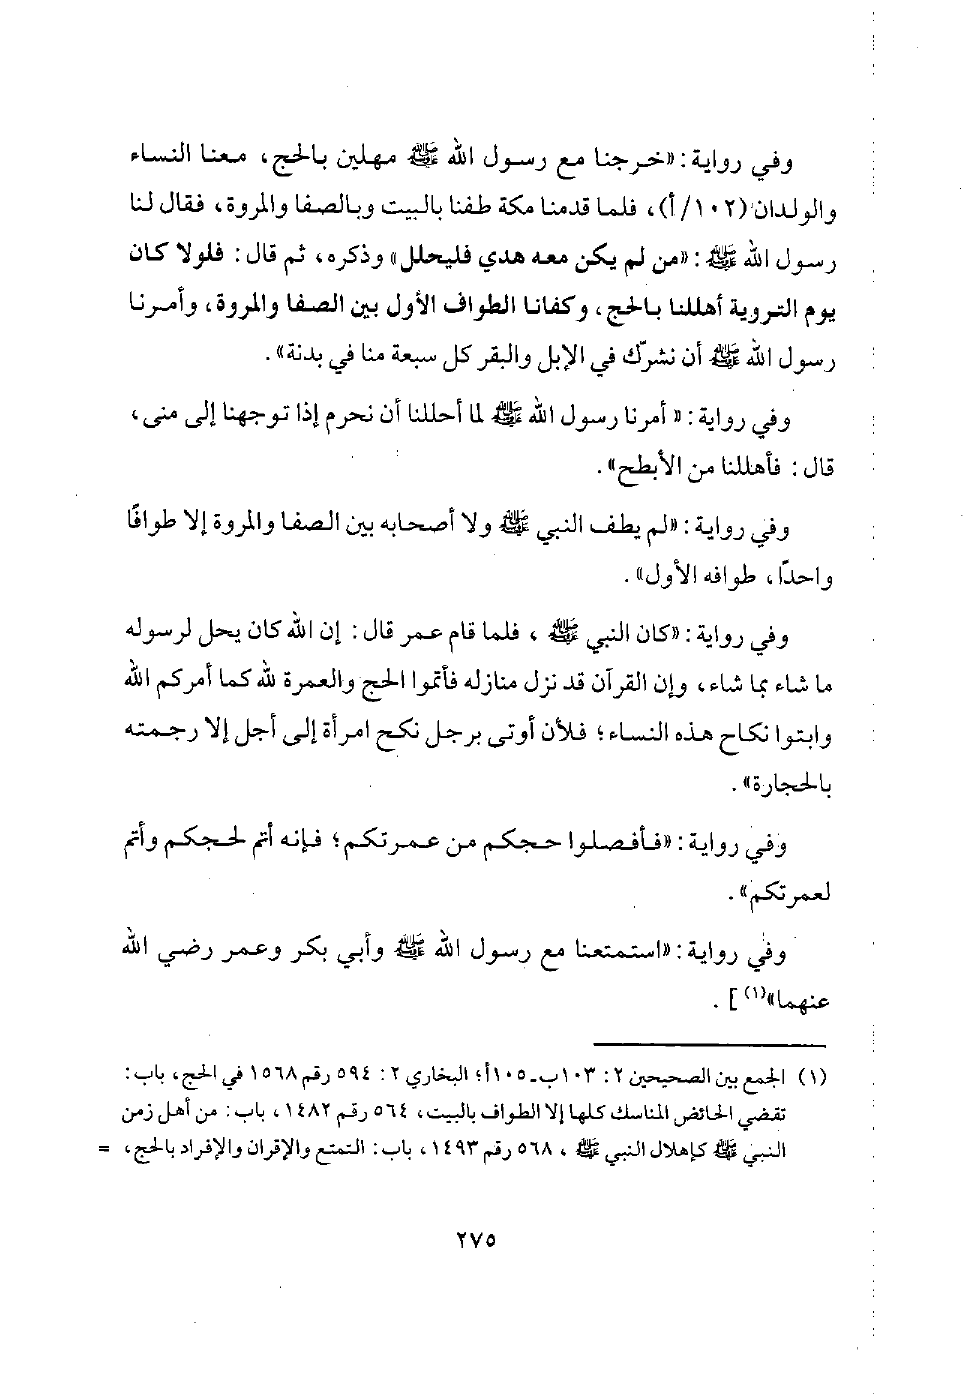 وفي رواية: «خرجنا مع رسول الله ﷺ مهلين بالحج، معنا النساء
والولدان (١٠٢/أ)، فلما قدمنا مكة طفنا بالبيت وبالصفا والمروة، فقال لنا
رسول الله ﷺ: «من لم يكن معه هدي فليحلل» وذكره، ثم قال: فلولا كان
يوم التروية أهللنا بالحج، وكفانا الطواف الأول بين الصفا والمروة، وأمرنا
رسول الله ﷺ أن نشرّك في الإبل والبقر كل سبعة منا في بدنة».
وفي رواية: «أمرنا رسول الله ﷺ لما أحللنا أن نحرم إذا توجهنا إلى منى،
قال: فأهللنا من الأبطح».
وفي رواية: «لم يطف النبي ﷺ ولا أصحابه بين الصفا والمروة إلا طوافًا
واحدًا، طوافه الأول».
وفي رواية: «كان النبي ﷺ، فلما قام عمر قال: إن الله كان يحل لرسوله
ما شاء بما شاء، وإن القرآن قد نزل منازله فأتموا الحج والعمرة لله كما أمركم الله
وابتوا نكاح هذه النساء؛ فلأن أوتى برجل نكح امرأة إلى أجل إلا رجمته
بالحجارة».
وفي رواية: «فأفصلوا حجكم من عمرتكم؛ فإنه أتم لحجكم وأتم
لعمرتكم».
وفي رواية: «استمتعنا مع رسول الله ﷺ وأبي بكر وعمر رضي الله
عنهما»(١)].
(١) الجمع بين الصحيحين ٢: ١٠٣ب-١٠٥أ؛ البخاري ٢: ٥٩٤ رقم ١٥٦٨ في الحج، باب:
تقضي الحائض المناسك كلها إلا الطواف بالبيت، ٥٦٤ رقم ١٤٨٢، باب: من أهل زمن
النبي ﷺ كإهلال النبي ﷺ، ٥٦٨ رقم ١٤٩٣، باب: التمتع والإقران والإفراد بالحج، =
٢٧٥